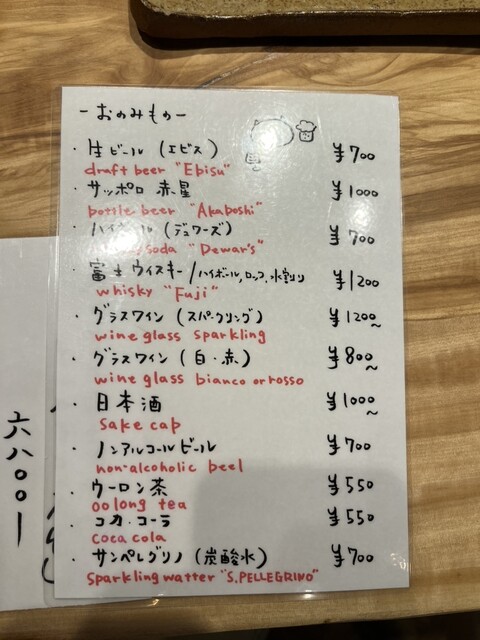 -おのみもの-
・生ビール (エビス) ¥700
draft beer "Ebisu"
・サッポロ 赤星 ¥1000
bottle beer "Akaboshi"
・ハイボール (デュワーズ) ¥700
soda "Dewar's"
・富士ウィスキー/ハイボール,ロック,水割り ¥1200
whisky "Fuji"
・グラスワイン (スパークリング) ¥1200~
wine glass sparkling
・グラスワイン (白・赤) ¥800~
wine glass bianco or rosso
・日本酒 ¥1000~
Sake cap
・ノンアルコールビール ¥700
non-alcoholic beel
・ウーロン茶 ¥550
oolong tea
・コカ・コーラ ¥550
coca cola
・サンペレグリノ (炭酸水) ¥700
Sparkling watter "S.PELLEGRINO"
六八〇〇ー